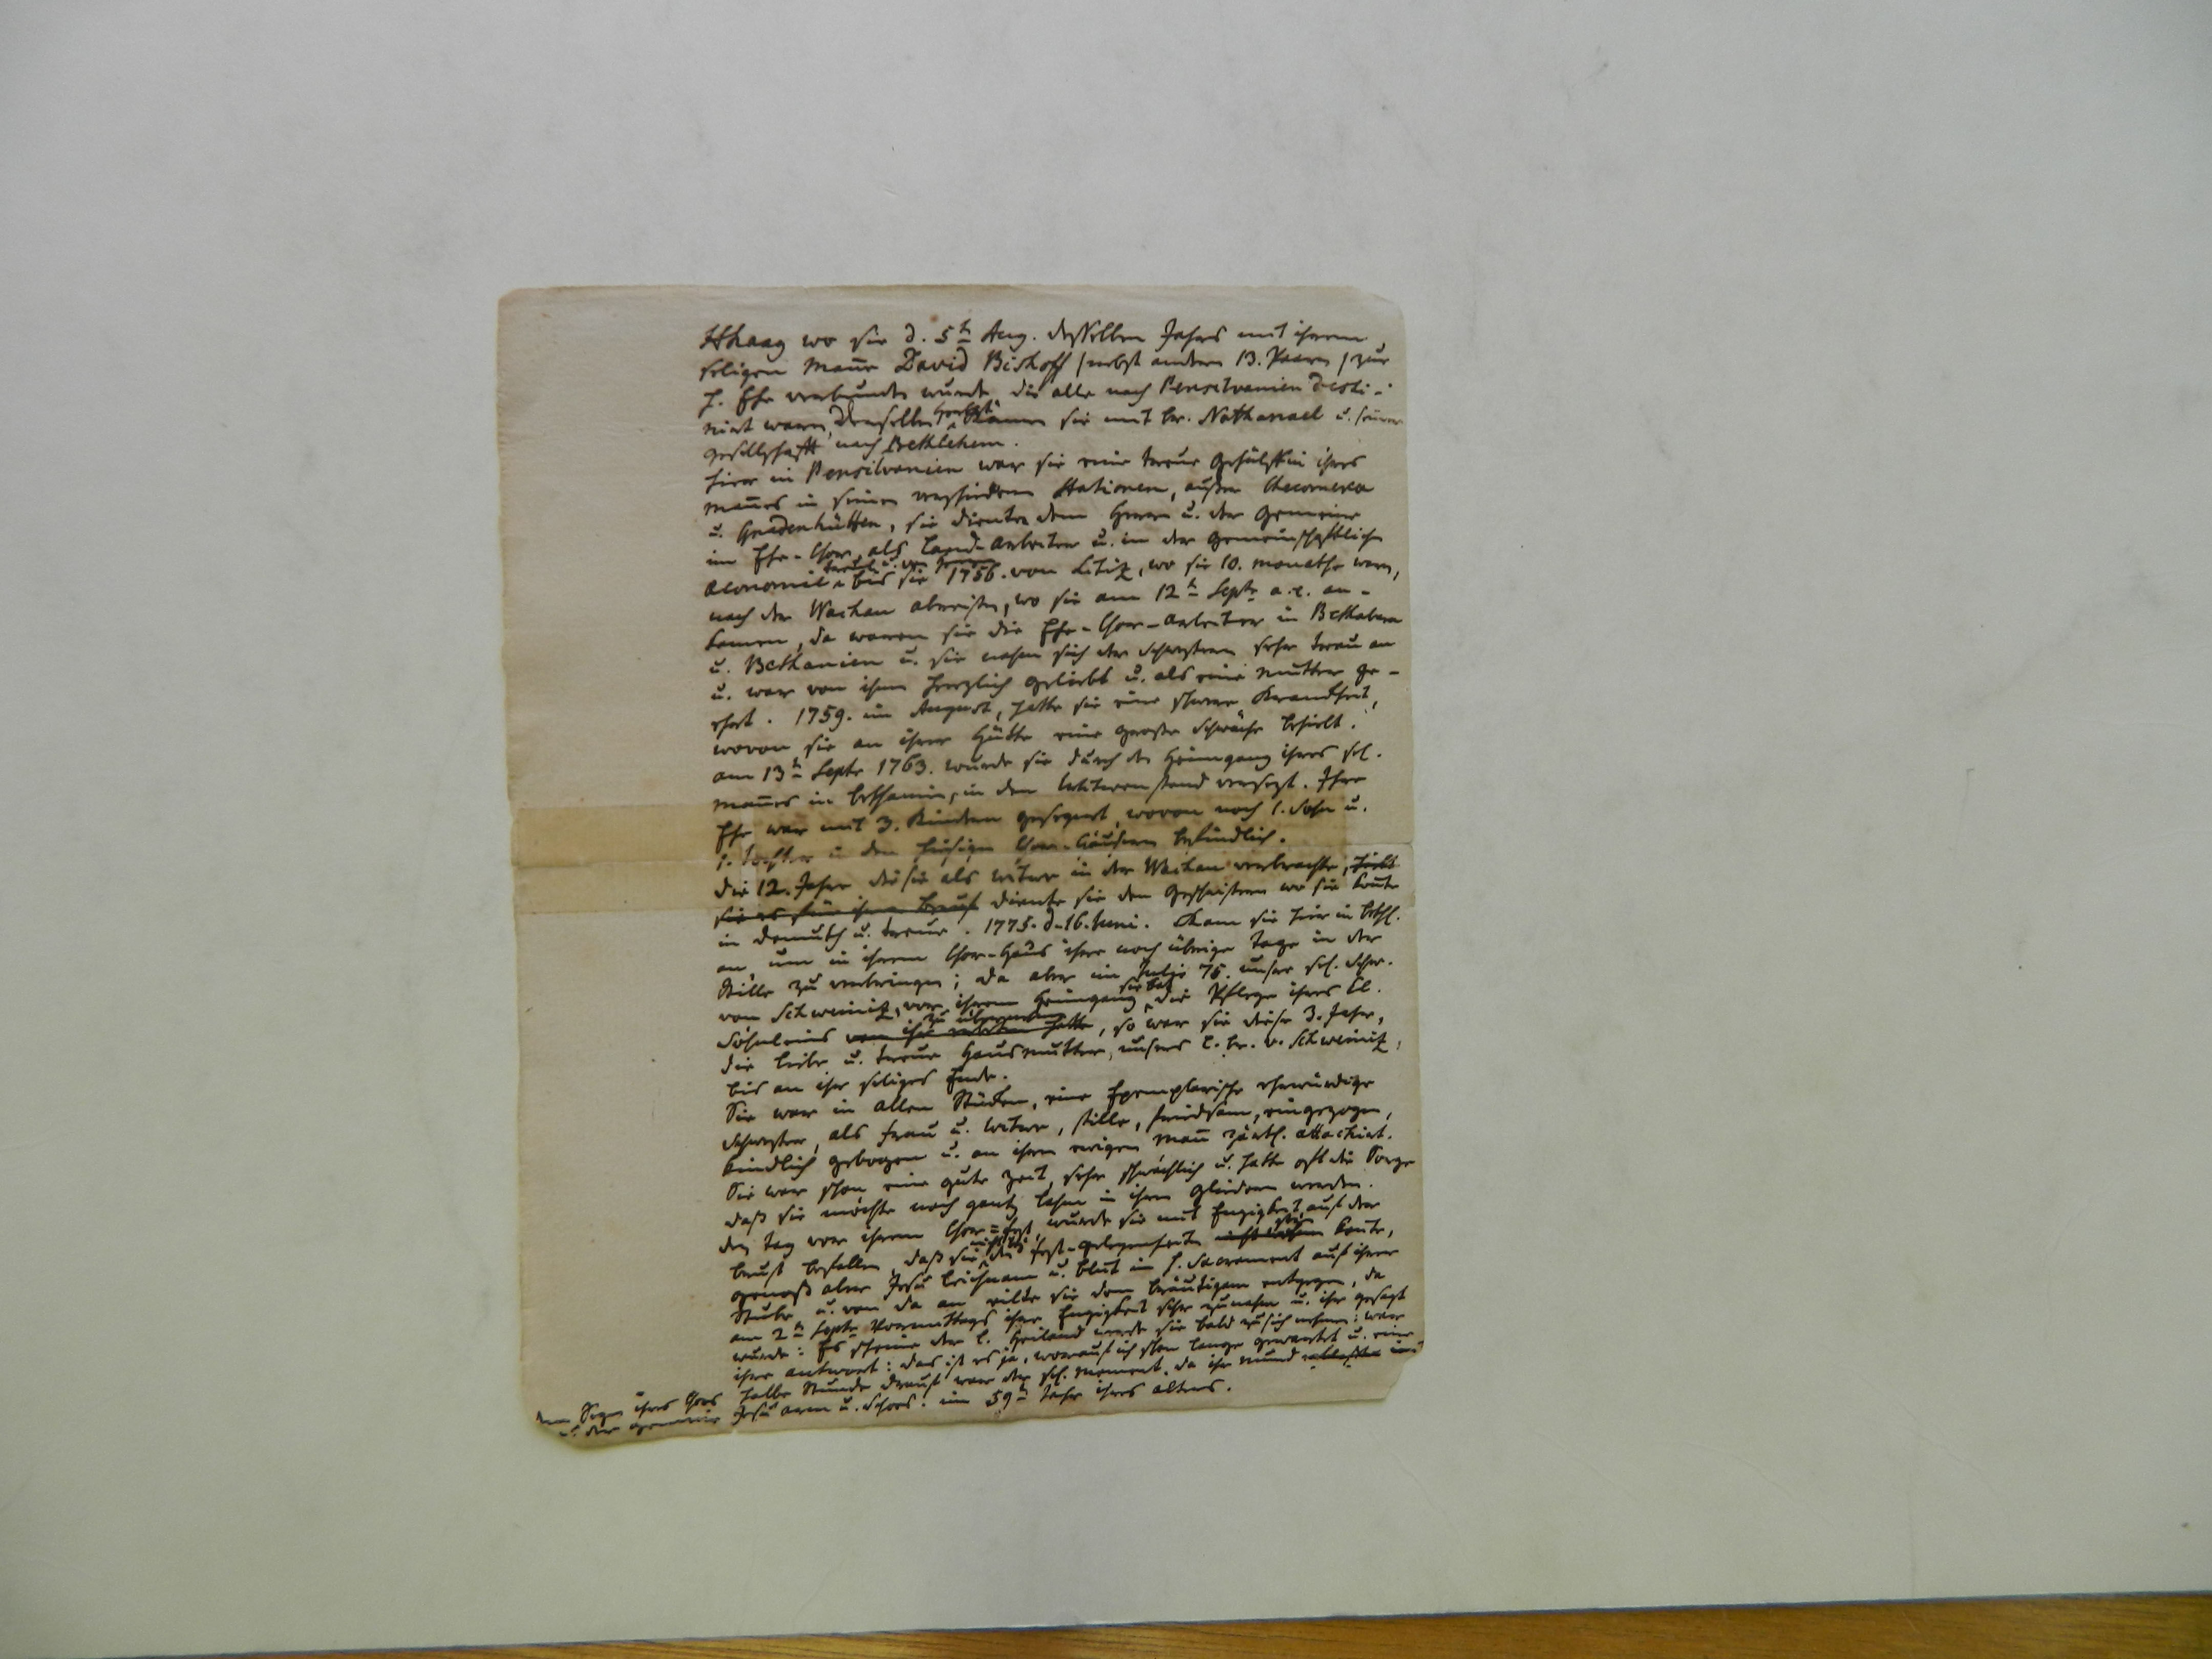 Hhaag wo sie d. 5t Aug. desselben Jahrs mit ihrem
seligen Mann David Bishoff /nebst andern 13. Paaren/ zur
h. Ehe verbunden wurde, die alle nach Pensilvanien desti-
nirt waren, denselben Herbst kamen sie mit br. Nathanael u. seiner
gesellschaft nach Bethlehem.
hier in Pensilvanien war sie eine treue gehülfin ihres
mannes in seinen verschiednen Stationen, außer
u. Gnadenhütten, sie diente dem Herrn u. der gemeine
im Ehe-Chor, als Land-arbeiter u. in der gemeinschaftlichen
oeconomie bis sie 1756. von Litiz, wo sie 10. monathe waren,
nach der Wachau abreisten, wo sie am 12t Septr a.c. an-
kamen, da waren sie die Ehe-Chor-arbeiter in Bethabara
u. Bethanien u. sie nahm sich der schwestern sehr treu an
u. war von ihnen herzlich geliebt u. als eine mutter ge-
ehrt. 1759. im August, hatte sie eine schwere Krankheit,
wovon sie an ihrer Hütte eine große schwäche behielt.
am 13t Septr 1763. wurde sie durch den Heimgang ihres sel.
mannes in bethanien, in den witwen stand versezt. Ihre
Ehe war mit 3. Kindern gesegnet, wovon noch 1. Sohn u.
1. tochter in den hiesigen Chor-Häusern befindlich.
die 12. Jahre die sie als witwe in der Wachau verbrachte, hielt
sie es für ihren beruf diente sie den geschwistern wo sie konte
in demuth u. treue. 1775. d. 16. Juni. kam sie hier in bethl.
an, um in ihrem Chor-Haus ihre noch übrige tage in der
Stille zu verbringen; da aber im Julio 75. unsre sel. schw.
von Schweiniz, vor ihrem Heimgang sie bat die Pflege ihres kl.
söhnleins zu übernehmen, so war sie diese 3. Jahre,
die liebe u. treue Hausmutter, unsers l. br. v. Schweiniz,
bis an ihr seliges Ende.
Sie war in allen Stücken, eine Exemplarische ehrwürdige
schwester, als frau u. witwe, stille, friedsam, eingezogen,
kindlich gebogen u. an ihren ewigen Mann zärtl. attachirt.
Sie war schon eine gute zeit, sehr schwächlich u. hatte oft die Sorge
daß sie möchte noch ganz lahm in ihren gliedern werden.
den tag vor ihrem Chor-fest, wurde sie mit Engigkeit auf der
brust befallen, daß sie nicht die fest-gelegenheiten konte,
genoß aber Jesu leichnam u. blut im h. Sacrament auf ihrer
Stube u. von da an eilte sie dem bräutigam entgegen, da
am 2t Septr Vormittags ihre Engigkeit sehr zunahm u. ihr gesagt
wurde: Es scheine der l. Heiland werde sie bald zu sich nehmen: war
ihre antwort: das ist es ja, worauf ich schon lange gewartet u. eine
halbe Stunde drauf war der sel. moment, da ihr mund erblaßte in
dem Segen ihres Chors
u. der gemeine
Jesu arm u. schoos. im 59t Jahr ihres alters.